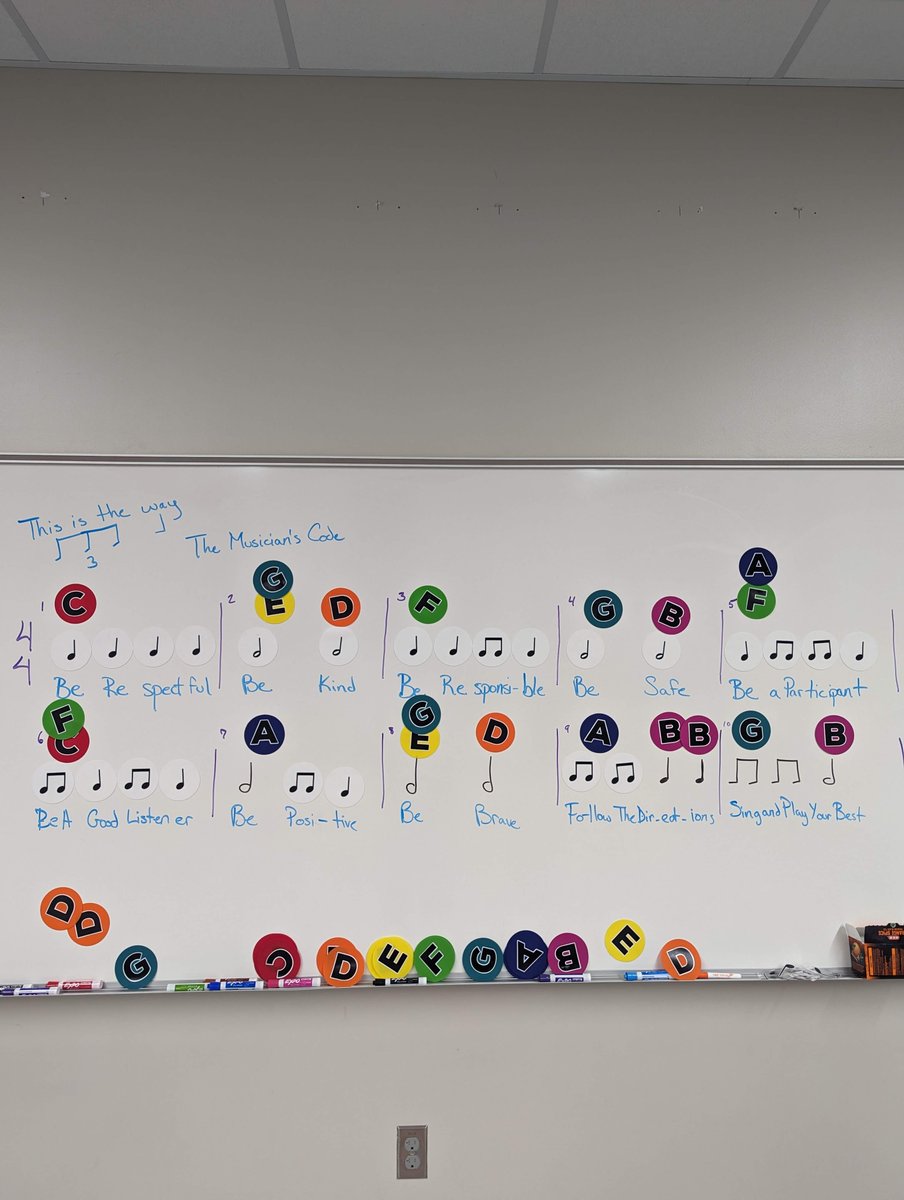 This is the way
3
The Musician's Code
4
4
1 C 2 G E D 3 F 4 G B 5 A F
Be Re spectful Be Kind Be Re sponsi-ble Be Safe Be a Participant
6 F C 7 A 8 G E D 9 A B B 10 G B
Be A Good Listener Be Posi-tive Be Brave Follow The Dir-ect-ions Sing and Play Your Best
D D G C D E F G A B E D
EXPO